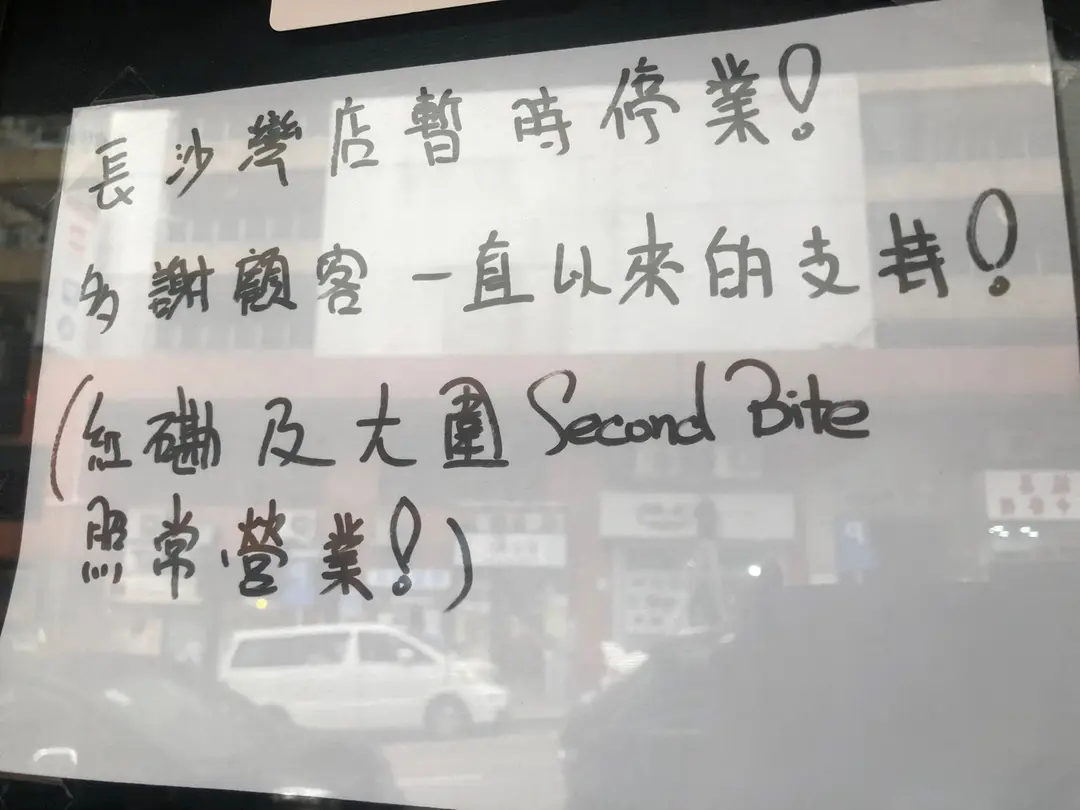 長沙灣店暫時停業！
多謝顧客一直以來的支持！
(紅磡及大圍 Second Bite
照常營業！)